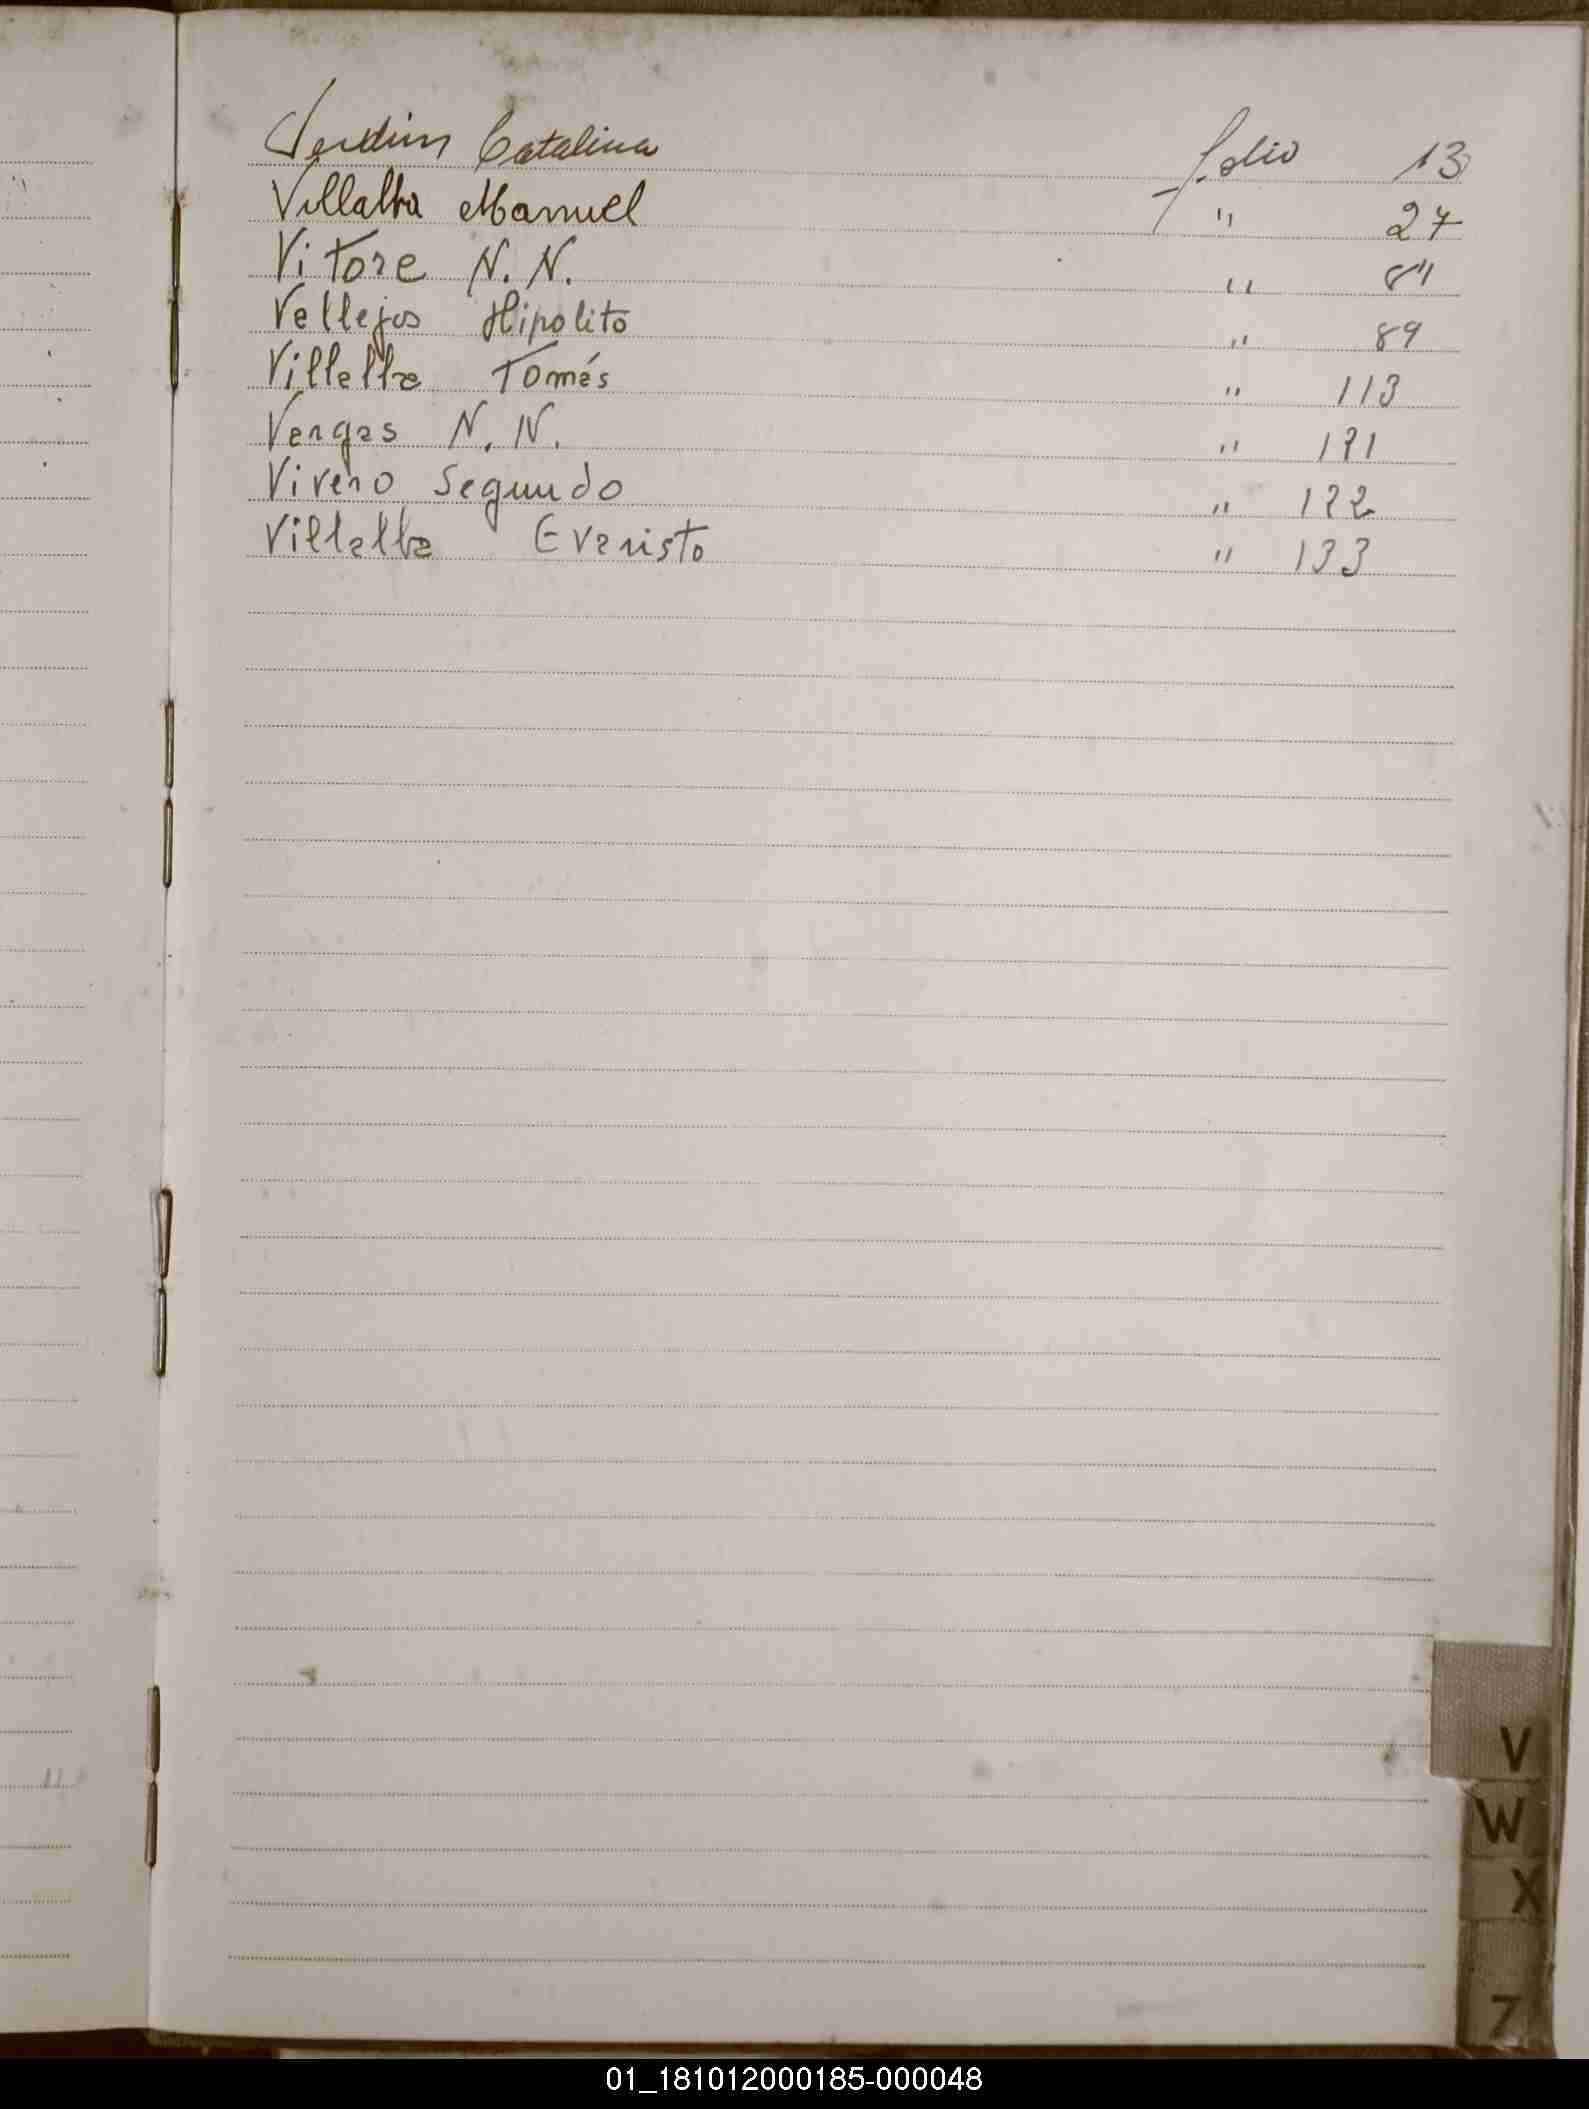 Verdun Catalina folio 13
Villalba Manuel " 27
Vitore N. N. "
Vallejos Hipolito " 89
Villalba Tomés " 113
Vargas N. N. " 121
Vivero Segundo " 122
Villalba Evaristo " 133
V
W
X
Z
01_181012000185-000048